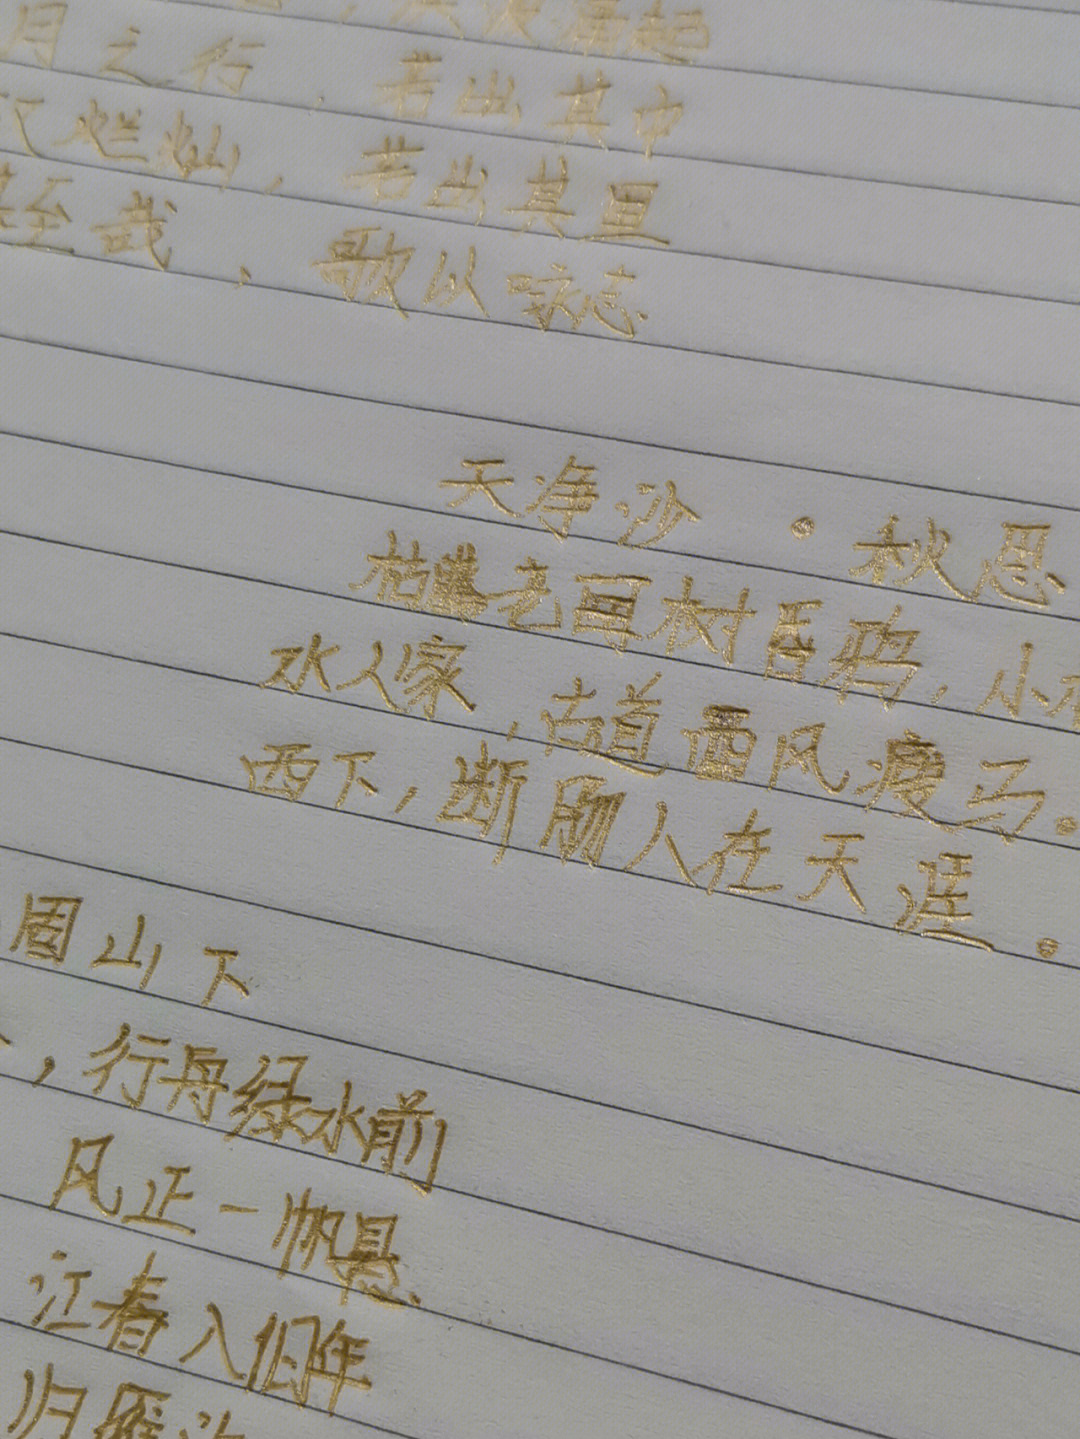 洪波涌起
月之行，若出其中
汉烂灿，若出其里
甚至哉，歌以咏志
天净沙·秋思
枯藤老树昏鸦，小
水人家，古道西风瘦马。
西下，断肠人在天涯。
固山下
，行舟绿水前
风正一帆悬
江春入旧年
归雁洛